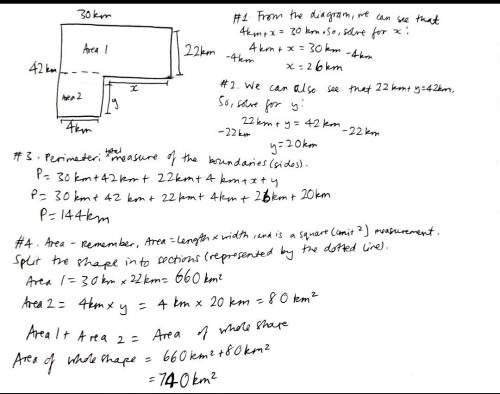 30km
Area 1
22km
42km
x
Area 2
y
4km
#1. From the diagram, we can see that
4km+x = 30km. So, solve for x:
4km+x = 30km
-4km -4km
x = 26km
#2. We can also see that 22km+y=42km,
So, solve for y:
22km + y = 42km
-22km -22km
y=20km
#3. Perimeter: total measure of the boundaries (sides).
P= 30km+42km+ 22km+4km+x+y
P= 30km+42km+ 22km+ 4km+ 26km+ 20km
P= 144km
#4. Area - Remember, Area=length×width, and is a square (unit²) measurement.
Split the shape into sections (represented by the dotted line).
Area 1 = 30km × 22km= 660km²
Area 2 = 4km×y = 4km × 20km = 80km²
Area 1 + Area 2 = Area of whole shape
Area of whole shape = 660km²+80km²
=740km²